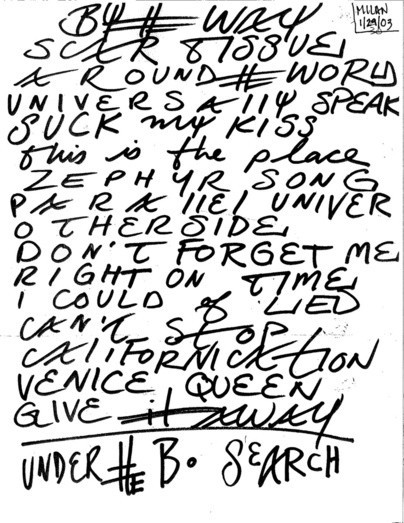 BY THE WAY
MILAN
1/29/03
SCAR TISSUE
AROUND THE WORLD
UNIVERSALLY SPEAK
SUCK MY KISS
this is the place
ZEPHYR SONG
PARALLEL UNIVER
OTHERSIDE
DON'T FORGET ME
RIGHT ON TIME
I COULD of LIED
CAN'T STOP
CALIFORNICATION
VENICE QUEEN
GIVE it AWAY
UNDER THE B. SEARCH